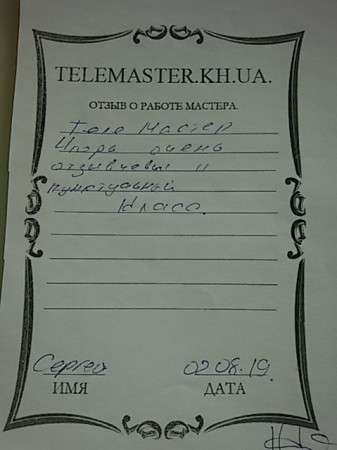 TELEMASTER.KH.UA.
ОТЗЫВ О РАБОТЕ МАСТЕРА.
Теле Мастер
Игорь очень
отзывчевый и
пунктуальный
Класс.
Сергей 02.08.19.
ИМЯ ДАТА